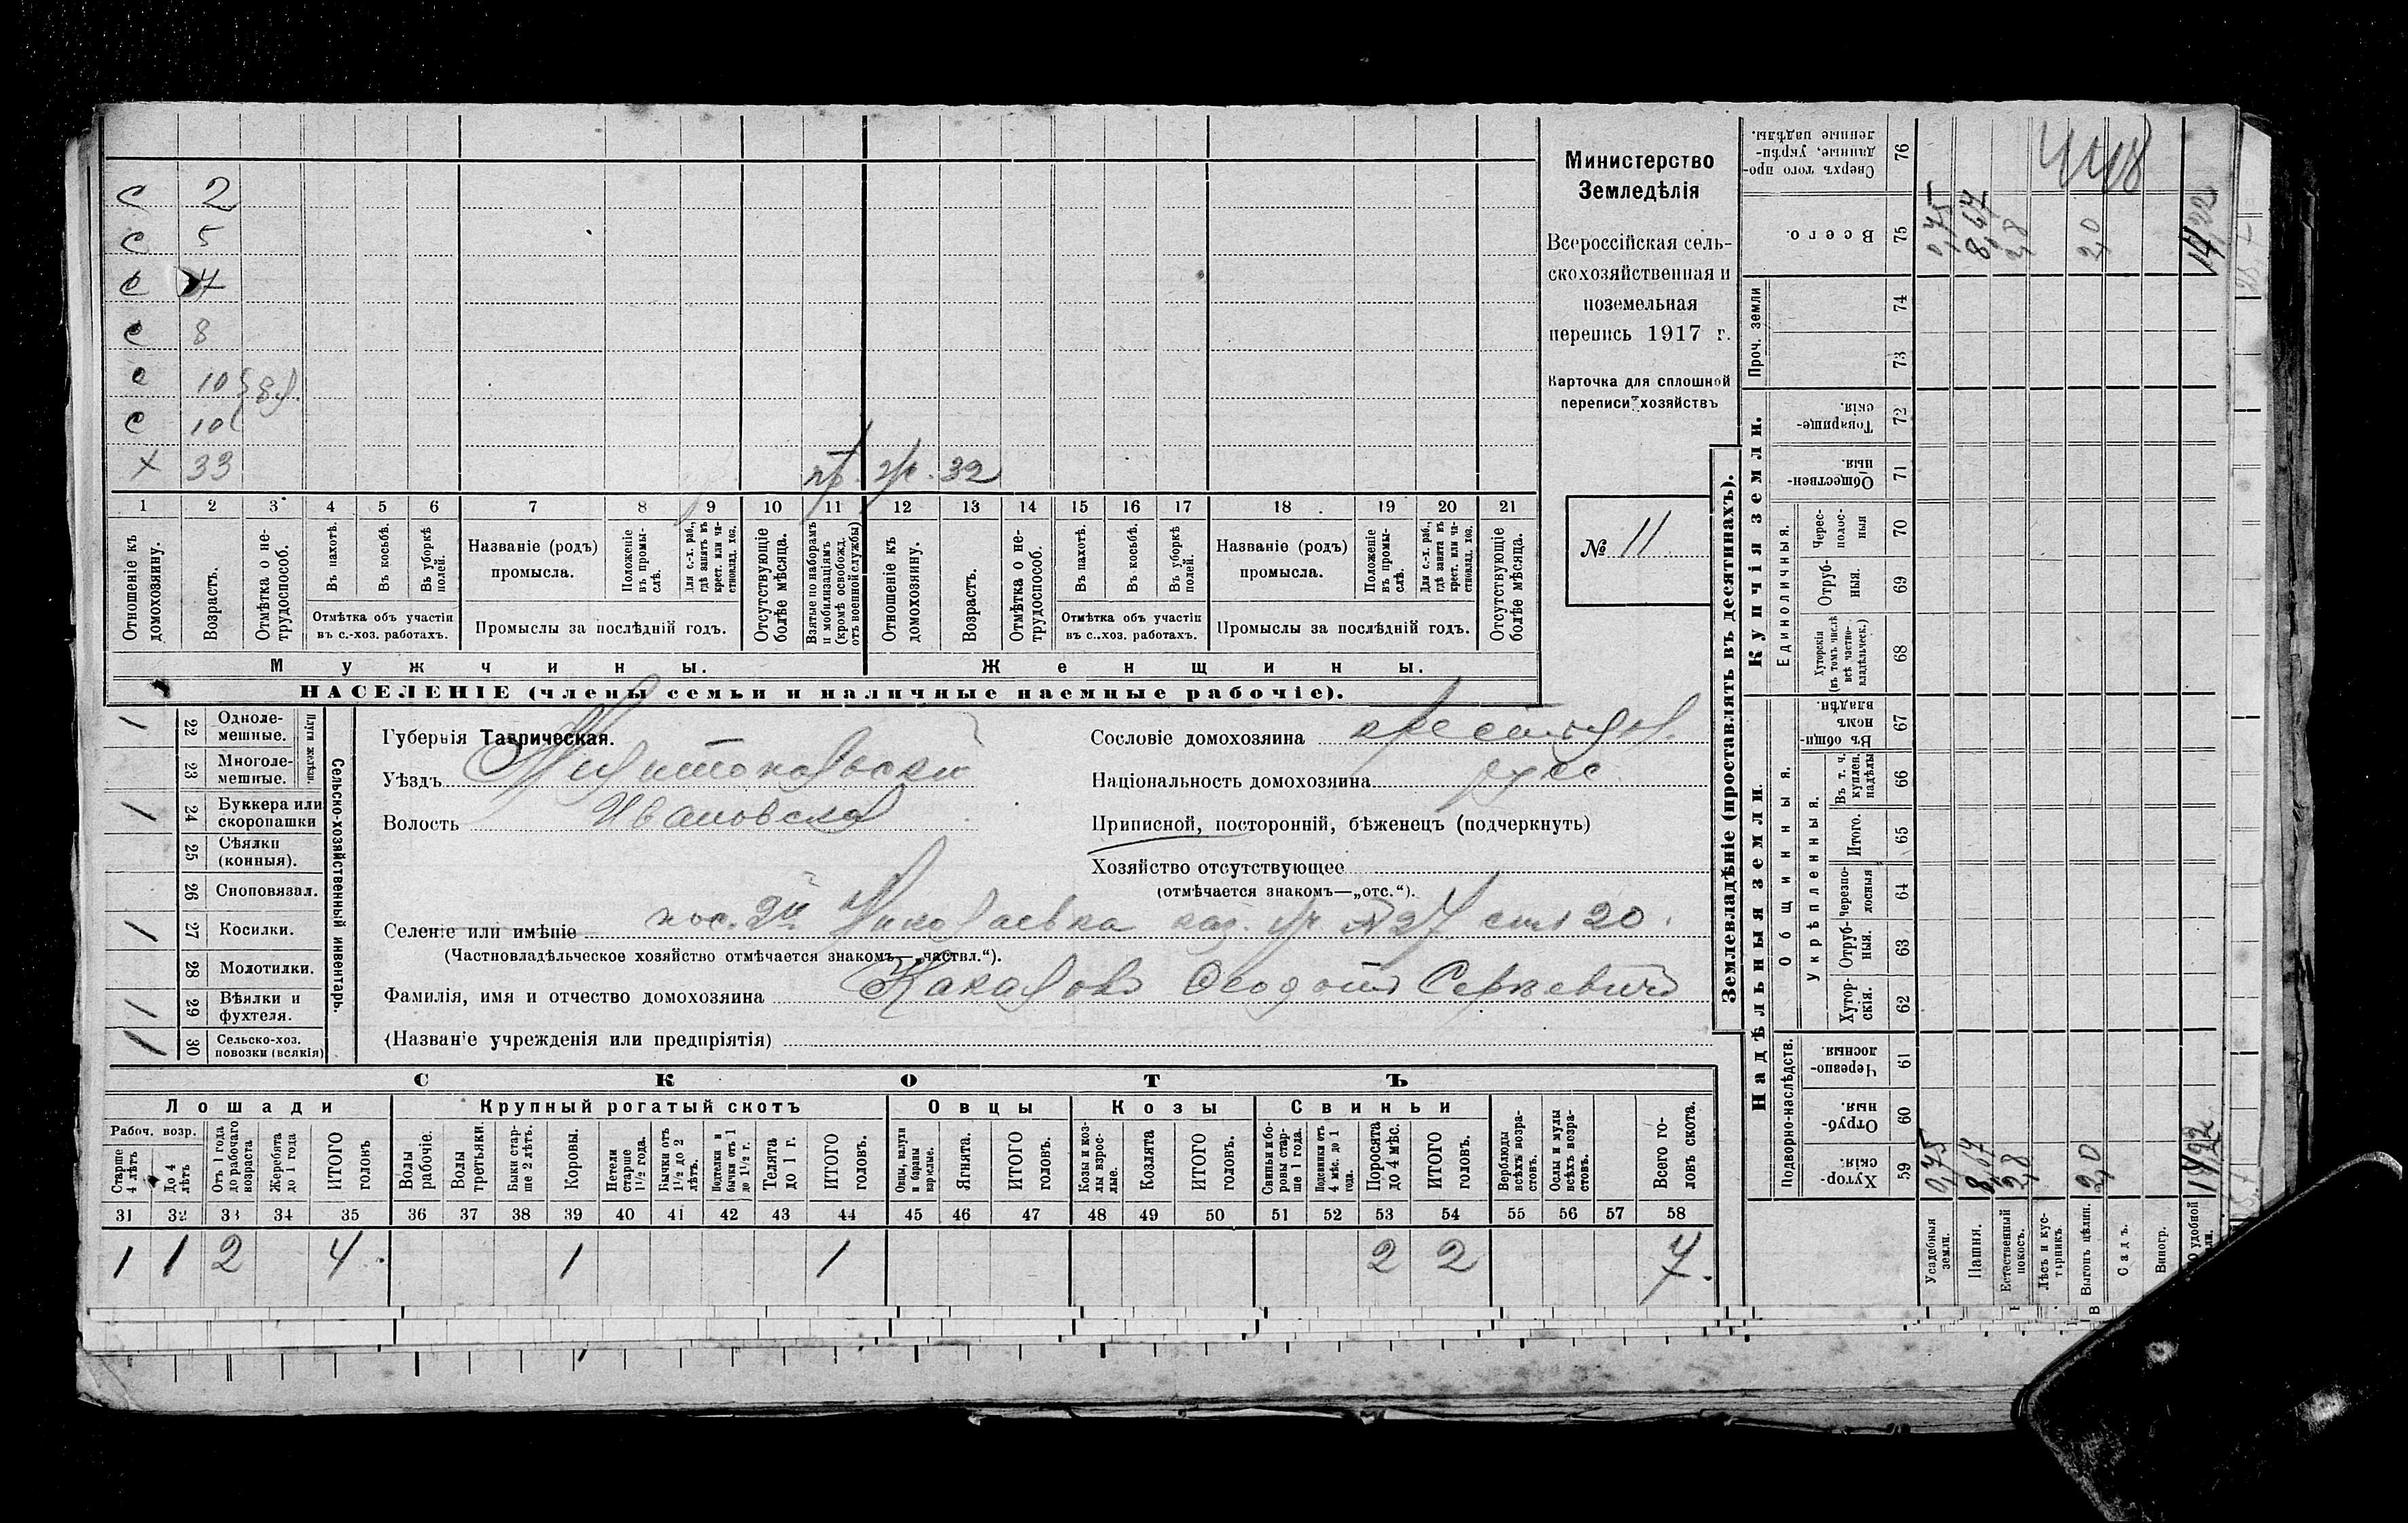 С 2
С 5
С
С 8
С 10
С 10
х 33 32
1 2 3 4 5 6 7 8 9 10 11 12 13 14 15 16 17 18 19 20 21
Отношеніе къ домохозяину.
Возрастъ.
Отмѣтка о нетрудоспособ.
Въ пахотѣ.
Въ косьбѣ.
Въ уборкѣ полей.
Отмѣтка объ участіи въ с.-хоз. работахъ.
Названіе (родъ) промысла.
Положеніе въ промыслѣ.
Для с.-х. раб., гдѣ занятъ въ крест. или частновлад. хоз.
Промыслы за послѣдній годъ.
Отсутствующіе болѣе мѣсяца.
Взятые по наборамъ и мобилизаціямъ (кромѣ освобожд. отъ военной службы)
Отношеніе къ домохозяину.
Возрастъ.
Отмѣтка о нетрудоспособ.
Въ пахотѣ.
Въ косьбѣ.
Въ уборкѣ полей.
Отмѣтка объ участіи въ с.-хоз. работахъ.
Названіе (родъ) промысла.
Положеніе въ промыслѣ.
Для с.-х. раб., гдѣ занята въ крест. или частновлад. хоз.
Промыслы за послѣдній годъ.
Отсутствующіе болѣе мѣсяца.
Мужчины.
Женщины.
НАСЕЛЕНІЕ (члены семьи и наличные наемные рабочіе).
Министерство
Земледѣлія
Всероссійская сель-
скохозяйственная и
поземельная
перепись 1917 г.
Карточка для сплошной
переписи хозяйствъ
№ 11
Сельско-хозяйственный инвентарь.
Плуги желѣзн.
1 22 Одноле-мешные.
23 Многоле-мешные.
1 24 Буккера или скоропашки
25 Сѣялки (конныя).
26 Сноповязал.
1 27 Косилки.
28 Молотилки.
1 29 Вѣялки и фухтеля.
1 30 Сельско-хоз. повозки (всякія)
Губернія Таврическая.
Уѣздъ Мелитопольскій
Волость Ивановская
Сословіе домохозяина крестьян.
Національность домохозяина русс.
Приписной, посторонній, бѣженецъ (подчеркнуть)
Хозяйство отсутствующее
(отмѣчается знакомъ—„отс.“).
Селеніе или имѣніе пос. 2й Николаевка каз. уч №27 20
(Частновладѣльческое хозяйство отмѣчается знакомъ—„частвл.“).
Фамилія, имя и отчество домохозяина Сергѣевичъ
(Названіе учрежденія или предпріятія)
СКОТЪ
Лошади Крупный рогатый скотъ Овцы Козы Свиньи
Рабоч. возр.
Старше 4 лѣтъ
До 4 лѣтъ
Отъ 1 года до рабочаго возраста
Жеребята до 1 года
ИТОГО головъ
Волы рабочіе.
Волы третьяки.
Быки старше 2 лѣтъ.
Коровы.
Нетели старше 1½ года.
Бычки отъ 1½ до 2 лѣтъ.
Подтелки и бычки отъ 1 до 1½ г.
Телята до 1 г.
ИТОГО головъ.
Овцы, валухи и бараны взрослые.
Ягнята.
ИТОГО головъ.
Козы и козлы взрослые.
Козлята
ИТОГО головъ.
Свиньи и боровы старше 1 года.
Подсвинки отъ 4 мѣс. до 1 года.
Поросята до 4 мѣс.
ИТОГО головъ.
Верблюды всѣхъ возрастовъ.
Ослы и мулы всѣхъ возрастовъ.
Всего головъ скота.
31 32 33 34 35 36 37 38 39 40 41 42 43 44 45 46 47 48 49 50 51 52 53 54 55 56 57 58
1 1 2 4 1 1 2 2 7
Землевладѣніе (проставлять въ десятинахъ).
Купчія земли.
Надѣльныя земли.
Сверхъ того проданные, укрѣпленные надѣлы. 76
Всего. 75
Проч. земли 74 73
Товарищескія. 72
Общественныя. 71
Единоличныя.
Чересполосныя 70
Отрубныя. 69
Хуторскія (въ томъ числѣ всѣ частновладѣльческ.) 68
Общинныя.
Въ общинномъ владѣн. 67
Укрѣпленныя.
Въ т. ч. куплен. надѣлы 66
Итого. 65
Черезполосныя 64
Отрубныя. 63
Хуторскія. 62
Подворно-наслѣдств.
Черезполосныя. 61
Отрубныя. 60
Хуторскія. 59
Усадебныя земли. 0,75 0,75
Пашня. 8,67 8,67
Естественный покосъ. 2,8 2,8
Лѣсъ и кустарникъ.
Выгонъ цѣлин. 2,0 2,0
Садъ.
Виногр.
удобной 14,22 14,22
448